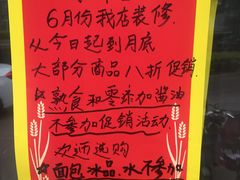 6月份我店装修.
从今日起到月底
大部分商品八折促销.
熟食和零添加酱油
不参加促销活动.
欢迎选购
面包冰品.水不参加